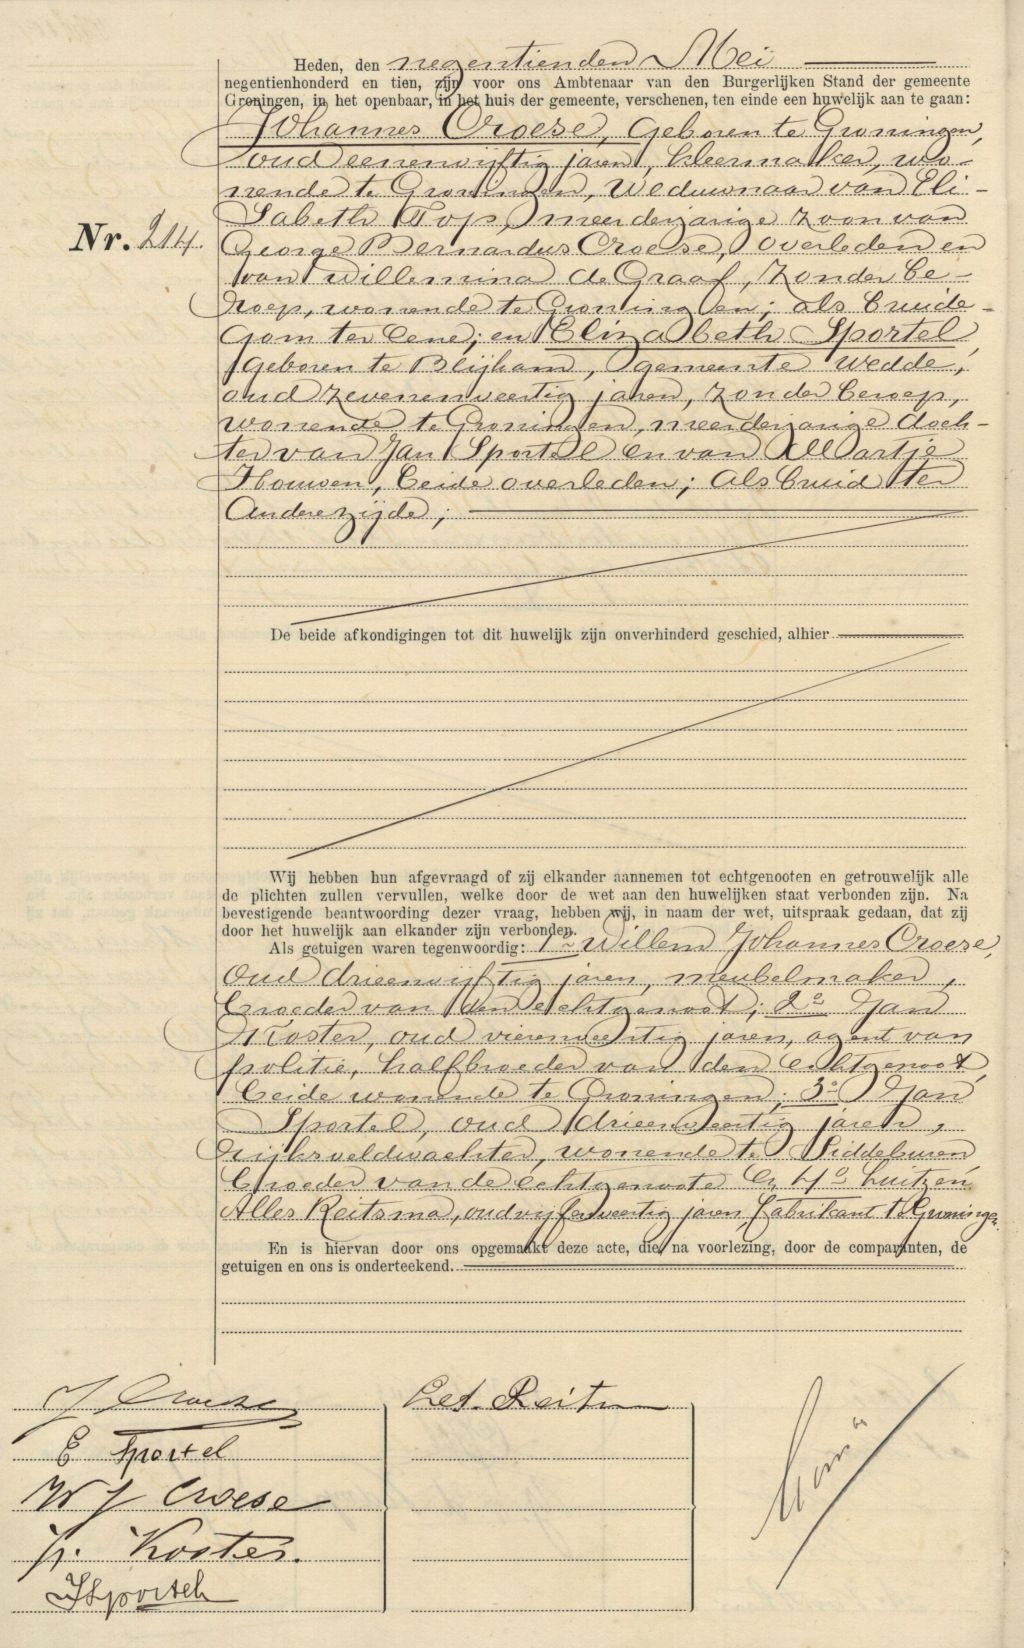 Heden, den negentienden Mei
negentienhonderd en tien, zijn voor ons Ambtenaar van den Burgerlijken Stand der gemeente
Groningen, in het openbaar, in het huis der gemeente, verschenen, ten einde een huwelijk aan te gaan:
Johannes Croese, geboren te Groningen,
oud eenenvijftig jaren, kleermaker, wo-
nende te Groningen, Weduwnaar van Eli-
sabeth Top, meerderjarige zoon van
Nr. 214.
George Bernardus Croese, overleden en
van Willemina de Graaf, zonder be-
roep, wonende te Groningen; als bruide-
gom ter eene; en Elizabeth Sportel,
geboren te Blijham, gemeente Wedde,
oud zevenenveertig jaren, zonder beroep,
wonende te Groningen, meerderjarige doch-
ter van Jan Sportel en van Martje
Houwen, beide overleden; als bruid ter
andere zijde;
De beide afkondigingen tot dit huwelijk zijn onverhinderd geschied, alhier
Wij hebben hun afgevraagd of zij elkander aannemen tot echtgenooten en getrouwelijk alle
de plichten zullen vervullen, welke door de wet aan den huwelijken staat verbonden zijn. Na
bevestigende beantwoording dezer vraag, hebben wij, in naam der wet, uitspraak gedaan, dat zij
door het huwelijk aan elkander zijn verbonden.
Als getuigen waren tegenwoordig: 1o Willem Johannes Croese,
oud drieenvijftig jaren, meubelmaker,
broeder van den echtgenoot; 2o Jan
Koster, oud vierenveertig jaren, agent van
politie, halfbroeder van den echtgenoot,
beide wonende te Groningen; 3o Jan
Sportel, oud drieenveertig jaren,
rijksveldwachter, wonende te Siddeburen,
broeder van de echtgenoote en 4o Luitzen
Alles Reitsma, oud vijfenveertig jaren, fabrikant te Groningen.
En is hiervan door ons opgemaakt deze acte, die, na voorlezing, door de comparanten, de
getuigen en ons is onderteekend.
J Croese
E Sportel
W J Croese
J. Koster.
J Sportel